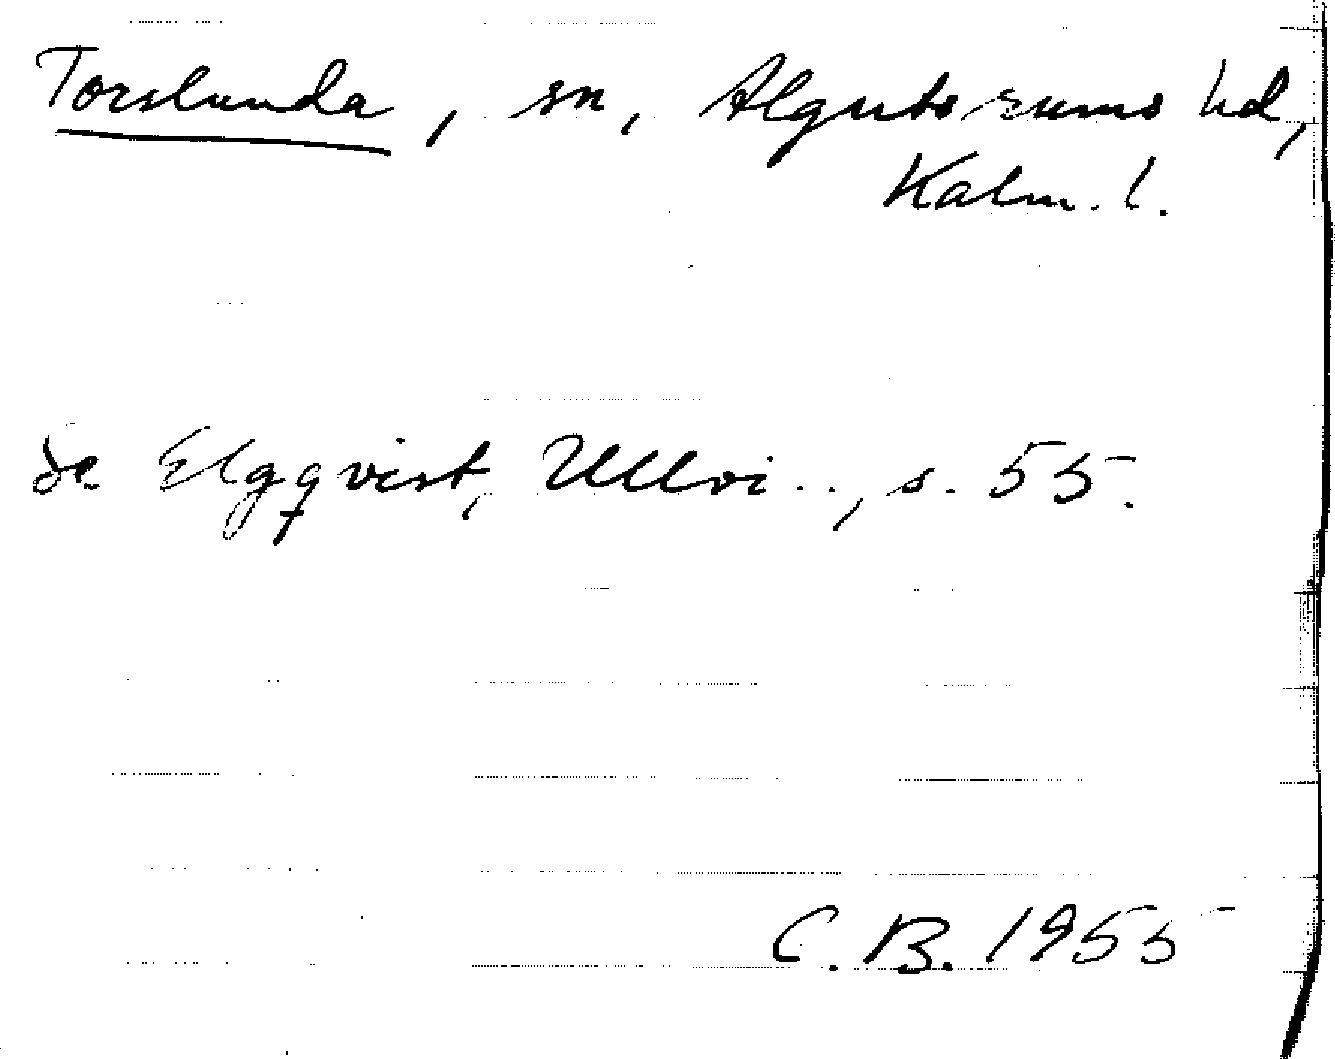 Torslunda, sn, Algutsrums hd,
Kalm. l.
Se Elgqvist, Ullvi.., s. 55.
C. B. 1955